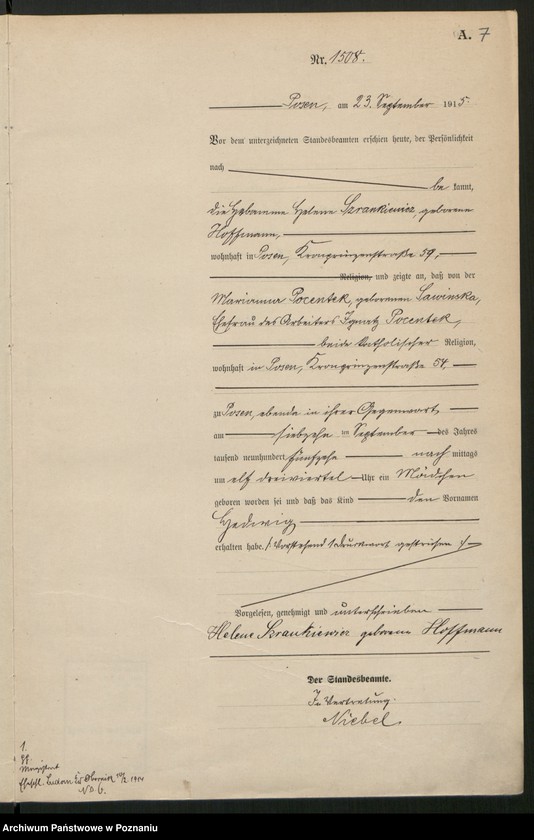 A. 7
Nr. 1508.
Posen, am 23. September 1915.
Vor dem unterzeichneten Standesbeamten erschien heute, der Persönlichkeit
nach be kannt,
die Hebamme Helene Szrankiewicz, geborene
Hoffmann,
wohnhaft in Posen, Kronprinzenstraße 59,
Religion, und zeigte an, daß von der
Marianna Pocentek, geborenen Lawinska,
Ehefrau des Arbeiters Ignatz Pocentek,
beide katholischer Religion,
wohnhaft in Posen, Kronprinzenstraße 54,
zu Posen, ebenda in ihrer Gegenwart
am siebzehn ten September des Jahres
tausend neunhundert fünfzehn nach mittags
um elf dreiviertel Uhr ein Mädchen
geboren worden sei und daß das Kind den Vornamen
Hedwig
erhalten habe. /: Vorstehend 1 Druckwort gestrichen :/
Vorgelesen, genehmigt und unterschrieben
Helene Szrankiewicz geborene Hoffmann
Der Standesbeamte.
In Vertretung.
Niebel.
1.
No. 6.
Archiwum Państwowe w Poznaniu